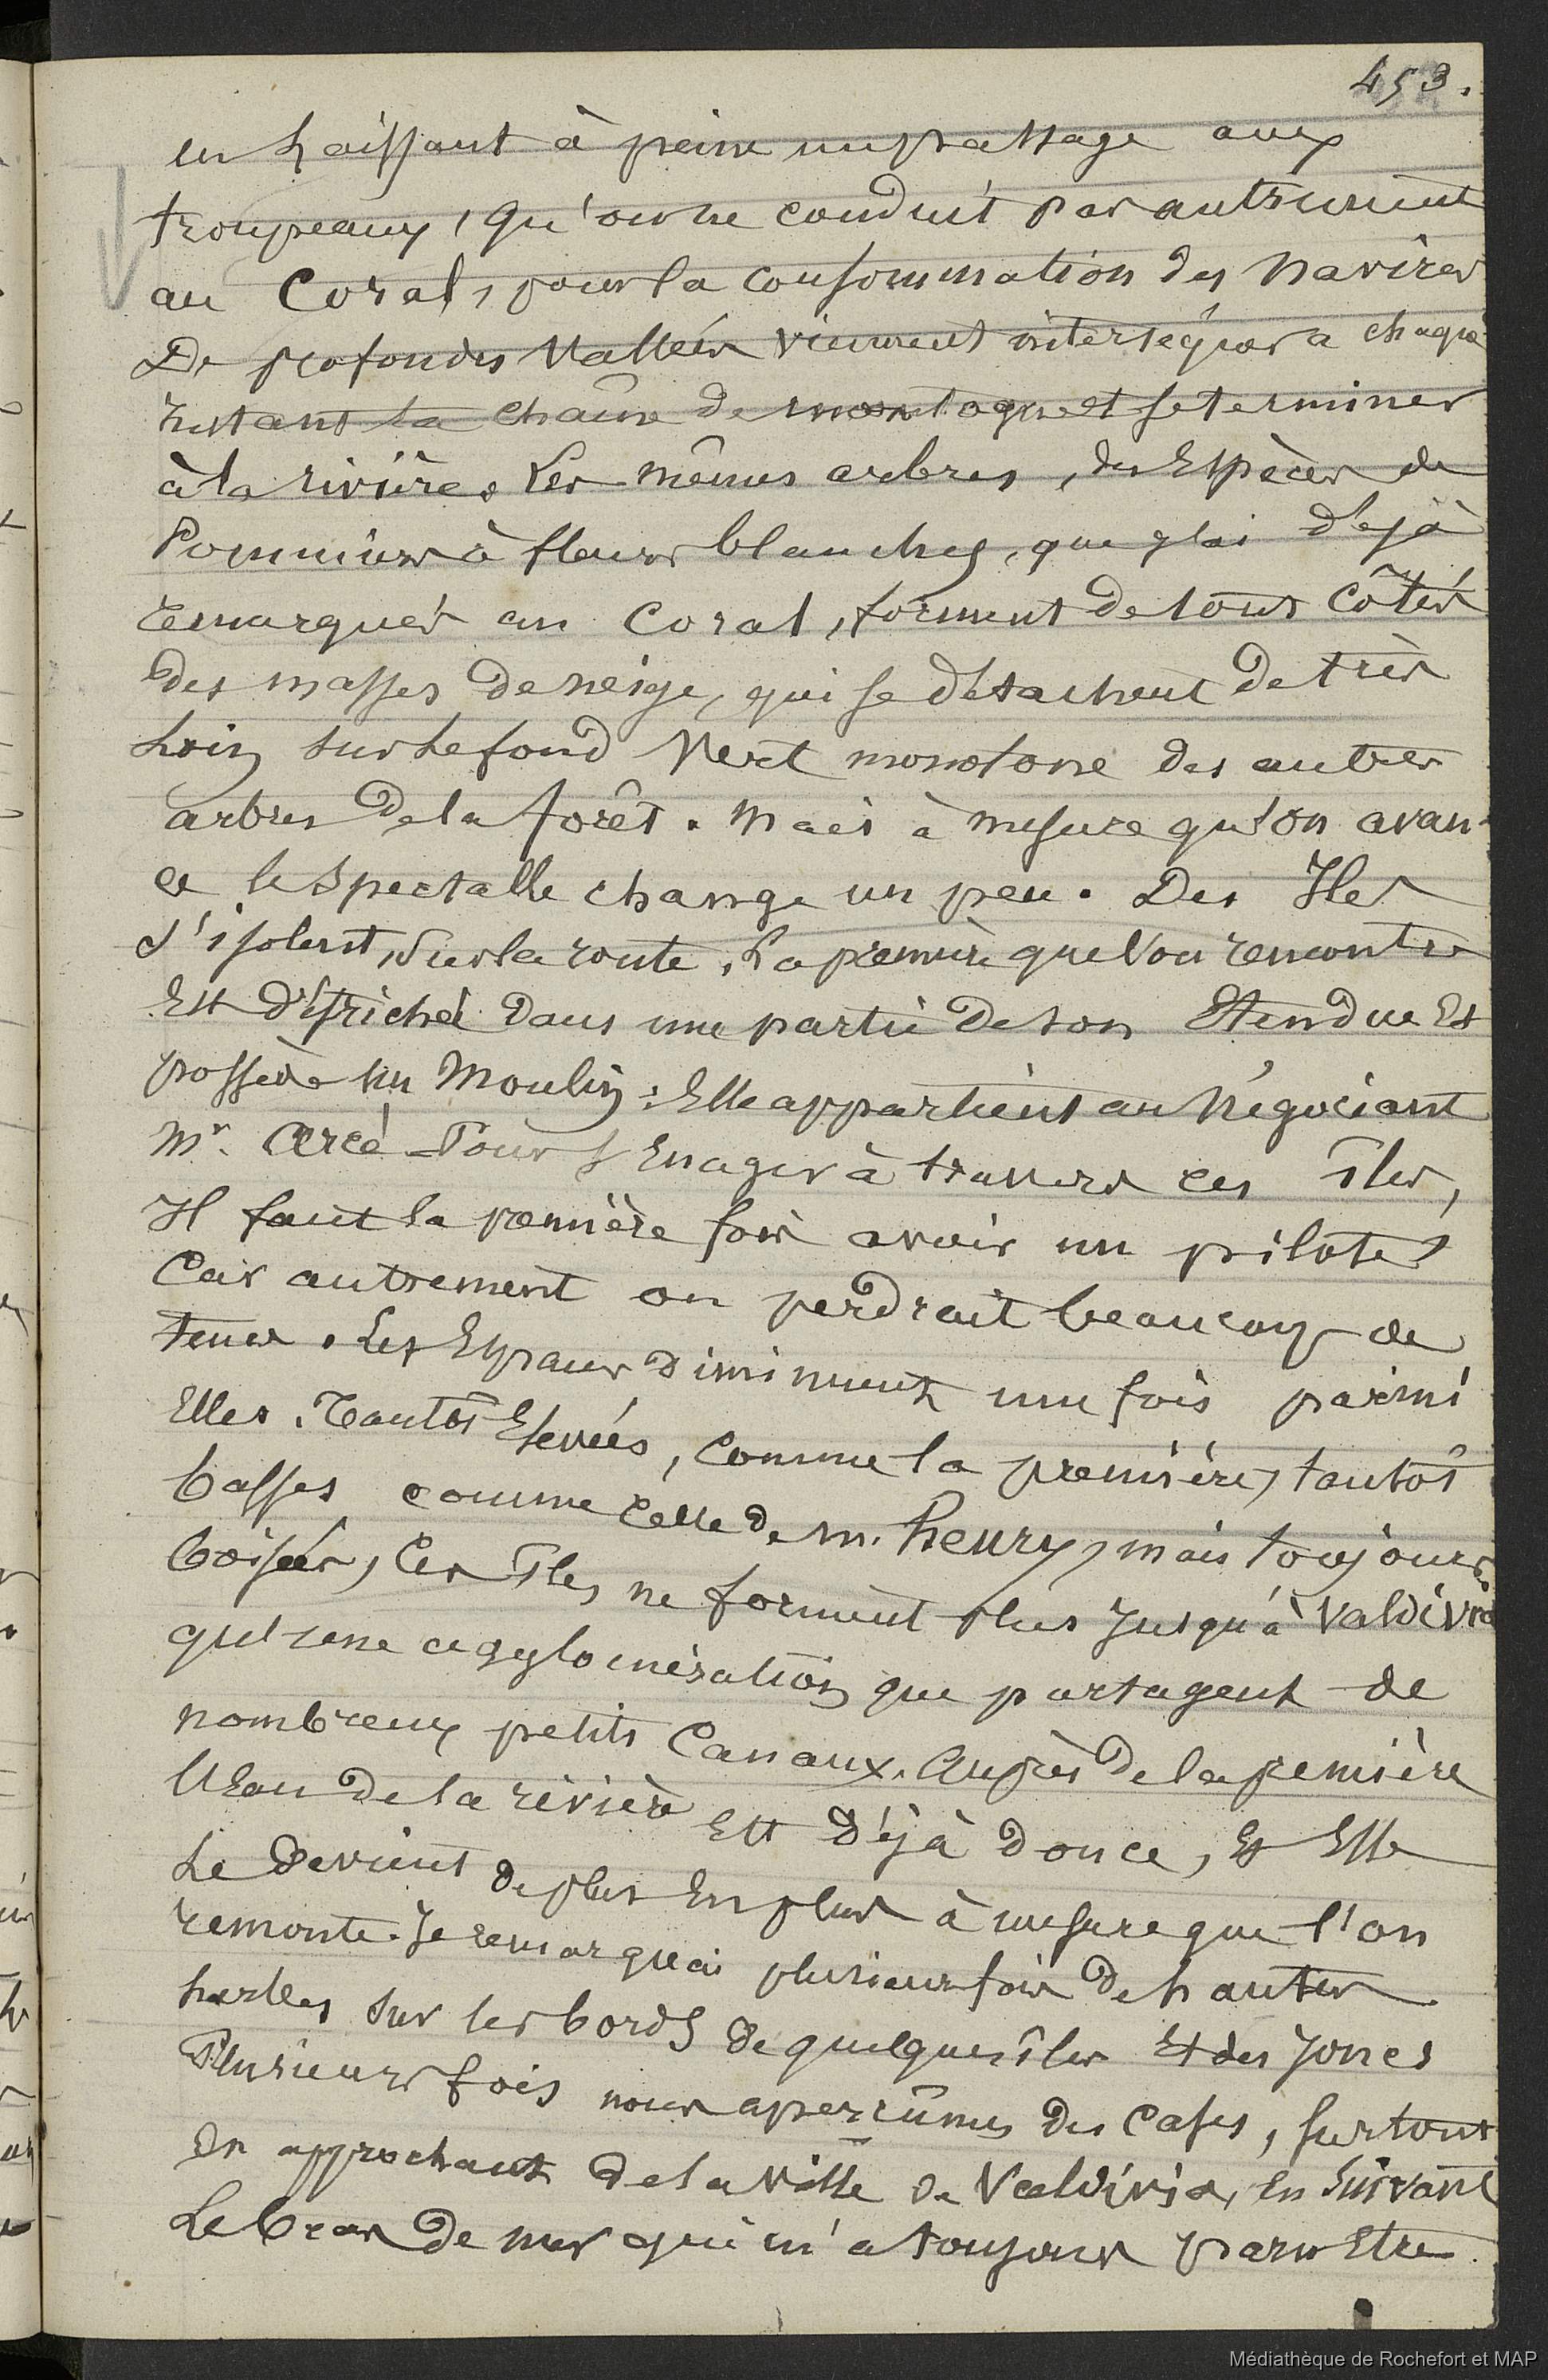 453.
en Laissant à peine un passage aux
troupeaux, qu'on ne conduit pas autrement
au Coral, pour la consommation des Navires
De profondes Vallées viennent interséquer à chaque
instant la chaîne de montagne et se terminer
à la rivière. Les mêmes arbres, des Espèces de
Pommiers à fleurs blanches, que j'ai déjà
remarqués au Coral, forment de tous Côtés
des masses de neige, qui se détachent de très
Loin sur Le fond Vert monotone des autres
arbres de la forêt. Mais à mesure qu'on avan-
ce le Spectalle change un peu. Des Iles
s'isolent, sur la route. La première que l'on rencontre
Est défriché dans une partie de son Etendue Et
possède un Moulin: Elle appartient au Négociant
Mr. Arcé - Pour s'Enager à travers ces îles,
Il faut la première fois avoir un pilote,
Car autrement on perdrait beaucoup de
tems. Les Espaces diminuent une fois parmi
Elles. Tantôt Elevées, Comme la première, tantôt
basses comme Celle de M. henry, mais toujours
boisées, Ces Iles ne forment plus Jusqu'à Valdivia
qu'une agglomération que partagent de
nombreux petits Canaux. Auprès de la première
L'Eau de la rivière Est déjà douce, Et Elle
Le devient de plus En plus à mesure que l'on
remonte. Je remarquai plusieurs fois de hautes
herbes sur les bords de quelques îles Et des Joncs
Plusieurs fois nous aperçûmes des Cases, surtout
En approchant de la ville de Valdivia, En Suivant
Le bras de mer qui m'a toujours paru Etre
Médiathèque de Rochefort et MAP